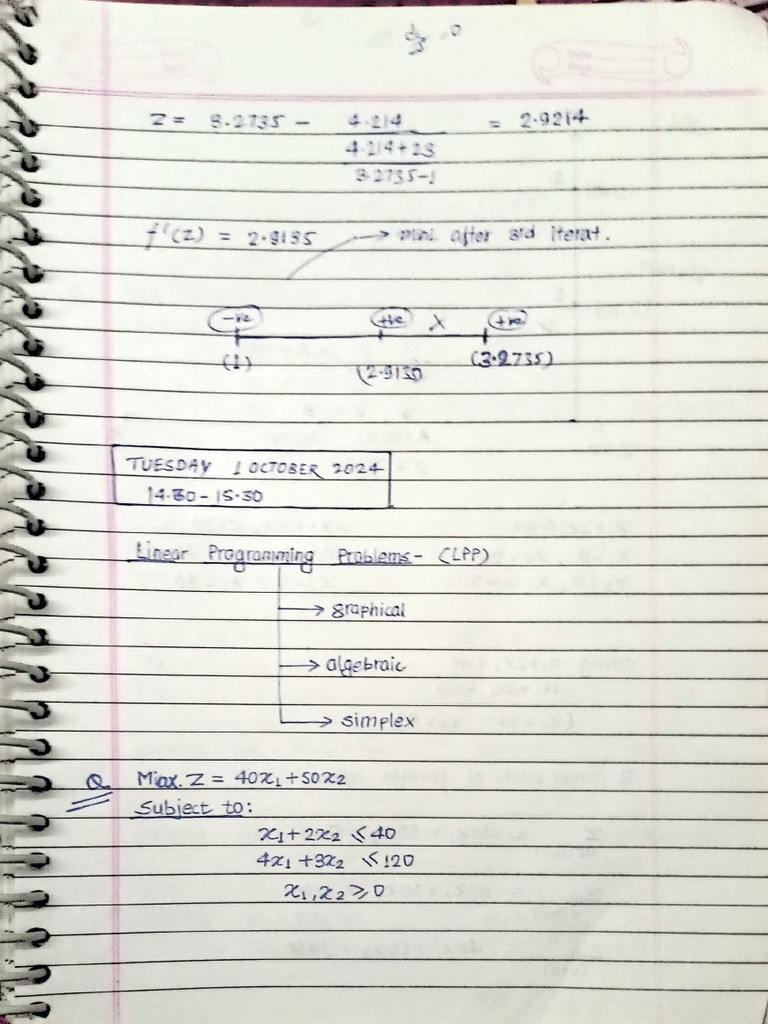 = 0
Z = 3.2735 - 4.214 = 2.9214
4.214+23
3.2735-1
f'(Z) = 2.9135 → mini. after 3rd iterat.
-ve +ve X +ve
(1) (2.9135) (3.2735)
TUESDAY 1 OCTOBER 2024
14.30 - 15.30
Linear Programming Problems - (LPP)
→ graphical
→ algebraic
→ simplex
Q Max. Z = 40x₁ + 50x₂
Subject to:
x₁ + 2x₂ ≤ 40
4x₁ + 3x₂ ≤ 120
x₁, x₂ ≥ 0